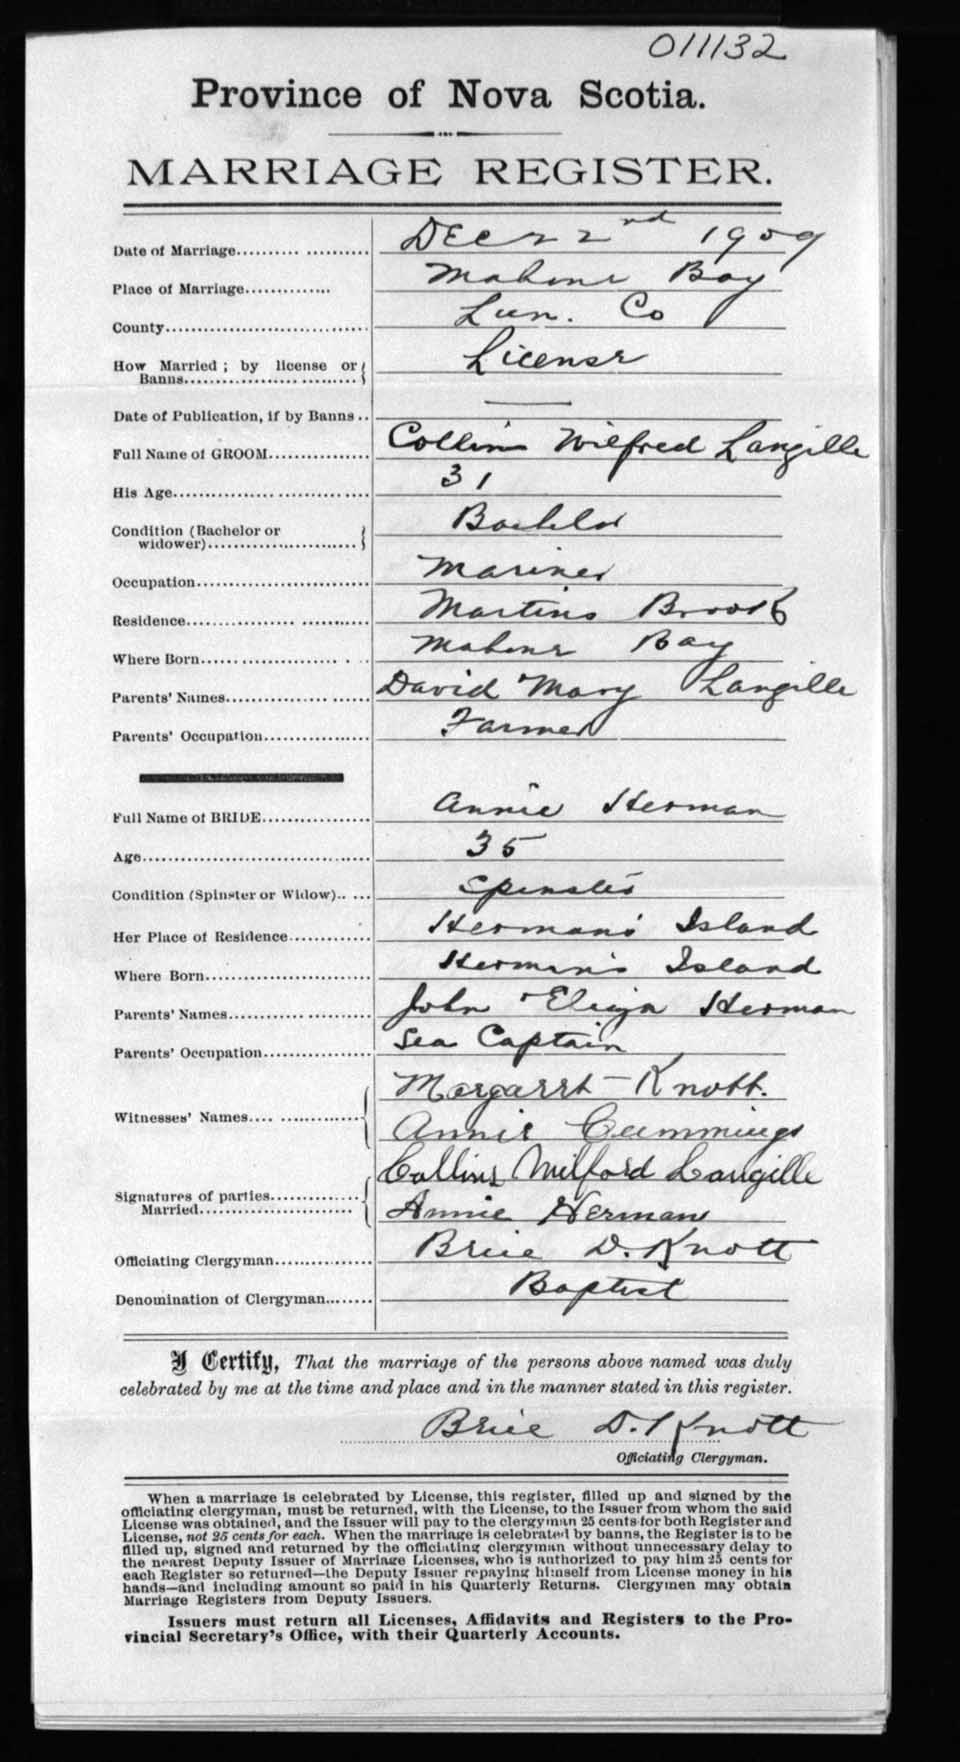 011132
Province of Nova Scotia.
MARRIAGE REGISTER.
Date of Marriage.................. Dec 22nd 1909
Place of Marriage.............. Mahone Bay
County.............................. Lun. Co
How Married ; by license or
Banns.............................. License
Date of Publication, if by Banns .. —
Full Name of GROOM................ Collins Wilfred Langille
His Age.............................. 31
Condition (Bachelor or
widower).......................... Bachelor
Occupation.......................... Mariner
Residence............................ Martins Brook
Where Born.......................... Mahone Bay
Parents' Names...................... David Mary Langille
Parents' Occupation................ Farmer
Full Name of BRIDE................. Annie Herman
Age.................................... 35
Condition (Spinster or Widow)..... Spinster
Her Place of Residence............. Herman's Island
Where Born.......................... Herman's Island
Parents' Names...................... John Eliza Herman
Parents' Occupation................ Sea Captain
Witnesses' Names................... Margaret Knott.
Annie Cummings
Signatures of parties.............. Collins Milford Langille
Married.......................... Annie Herman
Officiating Clergyman............... Brice D. Knott
Denomination of Clergyman....... Baptist
I Certify, That the marriage of the persons above named was duly
celebrated by me at the time and place and in the manner stated in this register.
Brice D. Knott
Officiating Clergyman.
When a marriage is celebrated by License, this register, filled up and signed by the
officiating clergyman, must be returned, with the License, to the Issuer from whom the said
License was obtained, and the Issuer will pay to the clergyman 25 cents for both Register and
License, not 25 cents for each. When the marriage is celebrated by banns, the Register is to be
filled up, signed and returned by the officiating clergyman without unnecessary delay to
the nearest Deputy Issuer of Marriage Licenses, who is authorized to pay him 25 cents for
each Register so returned—the Deputy Issuer repaying himself from License money in his
hands—and including amount so paid in his Quarterly Returns. Clergymen may obtain
Marriage Registers from Deputy Issuers.
Issuers must return all Licenses, Affidavits and Registers to the Pro-
vincial Secretary's Office, with their Quarterly Accounts.